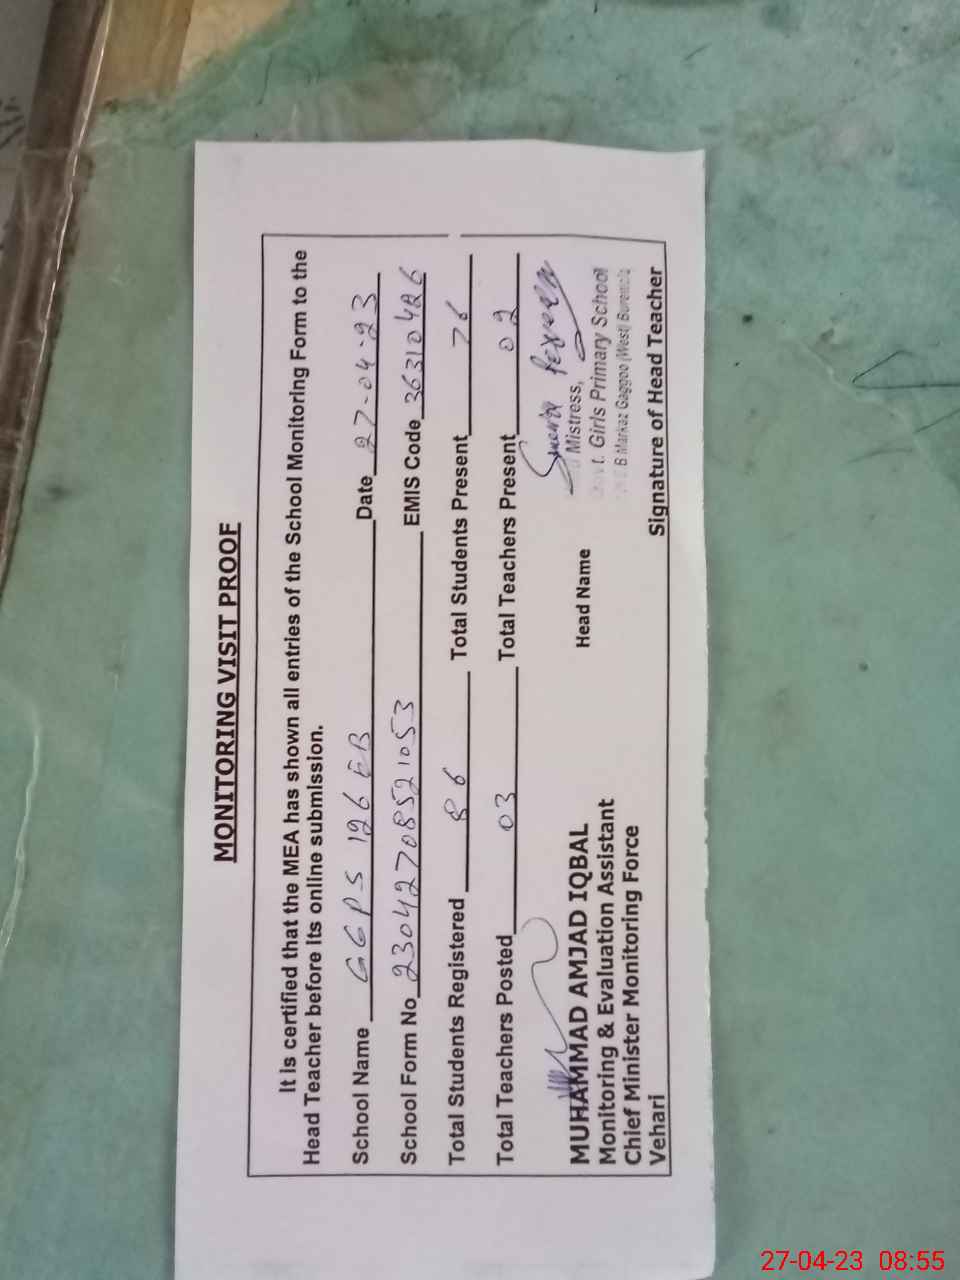 MONITORING VISIT PROOF
It is certified that the MEA has shown all entries of the School Monitoring Form to the
Head Teacher before its online submission.
School Name GGPS 126 EB Date 27-04-23
School Form No 23042708521053 EMIS Code 36310426
Total Students Registered 86 Total Students Present 76
Total Teachers Posted 03 Total Teachers Present 02
MUHAMMAD AMJAD IQBAL
Monitoring & Evaluation Assistant
Chief Minister Monitoring Force
Vehari
Head Name
Mistress,
t. Girls Primary School
B Markaz Gaggoo (West) Burewala
Signature of Head Teacher
27-04-23 08:55